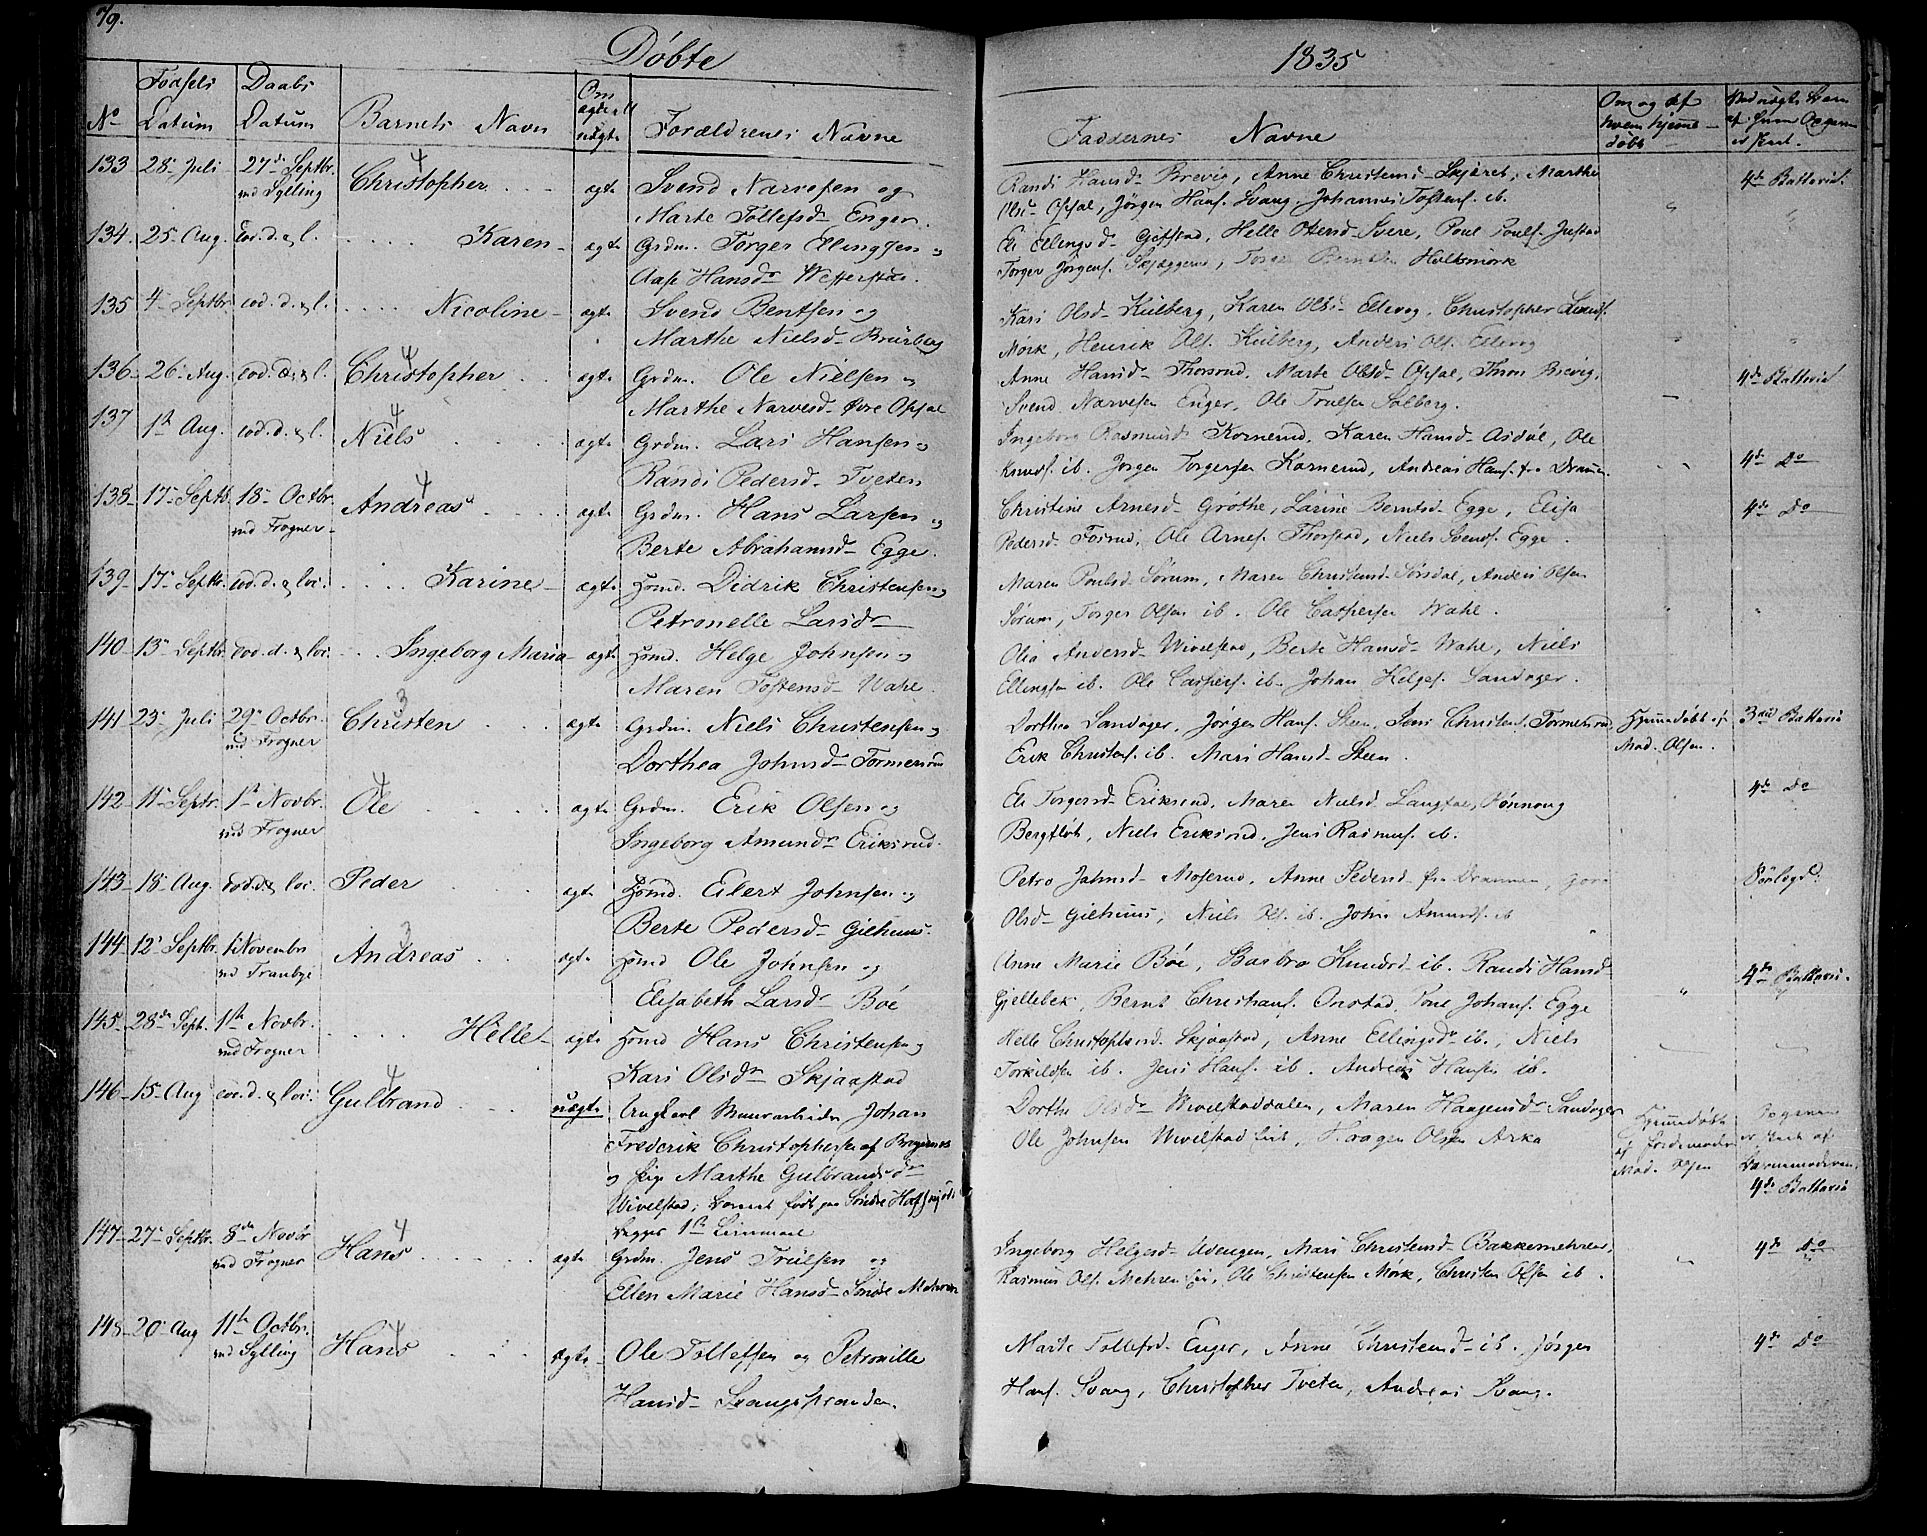 79.
Døbte
1835
No
Fødsels Datum
Daabs Datum
Barnets Navn
Om ægte ell uægte
Forældrenes Navne
Faddernes Navne
Om og af hvem hjemme-døbt
133 28 Juli 27de Septbr. Christopher 4 ægte Svend Narvesen og
ved Sylling Marte Tollefsd Enger.
Randi Hansd Brevig, Anne Christensd Skjæret, Marthe
Olsd Opsal, Jørgen Hans. Svang. Johannes Toftens. ib.
4de Battavie.
134. 25 Aug. eod. d. & l. Karen ægte Grdm. Torger Ellingsen &
Aase Hansd Westerstad.
Eli Ellingsd Gifstad, Helle Svere, Poul Pouls. Justad
Torger Jørgens. Skjæggerud, Holtsmörk
135 4 Septbr eod. d. & l. Nicoline ægte Svend Bentsen og
Marthe Nielsd Brurberg
Kari Olsd Kulberg, Karen Olsd Ellevog, Christopher
Mørk, Henrik Ols. Kulberg, Anders Ols. Ellevog
136 26 Aug. eod. d. & l. Christopher 4 ægte Grdm. Ole Nielsen &
Marthe Narvesd Øvre Opsal
Anne Hansd Thorsrud, Marte Olsd Opsal, Thron Brevig,
Svend Narvesen Enger, Ole Trulsen Solberg.
4de Battavie
137 1ste Aug. eod. d. & l. Niels 4 ægte Grdm. Lars Hansen &
Randi Pedersd Tveten
Ingeborg Rasmusd Kornerud, Karen Hansd Asdøl, Ole
Knuds. ib. Jørgen Torgersen Kornerud, Andreas Hans. fra Drammen
4de Do
138 17 Septb 18 Octbr. Andreas 4 ægte Grdm. Hans Larsen &
ved Frogner Berte Abrahamsd Egge.
Christine Arnesd Grøthe, Larine Berntsd Egge, Elisa
Pedersd Fosrud, Ole Arnes. Thorstad, Niels Svends. Egge.
4de Do
139 17 Septbr. eod. d. & loc. Karine ægte Huusmd. Didrik Christensen &
Petronelle Larsdr
Maren Poulsd Sørum, Maren Christensd Sørsdal, Anders Olsen
Sørum, Torger Olsen ib. Ole Caspersen Wahl.
140 13 Septbr. eod. d. & loc. Ingeborg Maria ægte Huusmd. Helge Johnsen &
Maren Toftensd Wahl.
Olia Andersd Wivelstad, Berte Hansd Wahl, Niels
Ellingsen ib. Ole Caspers. ib. Johan Helges. Sandager.
141 23 Juli 29 Octbr. Christen 3 ægte Grdm. Niels Christensen &
ved Frogner Dorthea Johnsd Tormersrud
Dorthea Sandager, Jørgen Hans. Steen, Jens Christens. Tormersrud
Erik Christens. ib. Mari Hansd Steen.
Hjemmedøbt af
Mad. Olsen.
3die Battavie
142 11 Septr. 1ste Novbr. Ole 4 ægte Grdm. Erik Olsen &
ved Frogner Ingeborg Amundsdr Eriksrud.
Eli Torgersd Eriksrud, Maren Nielsd Langsae, Rønnoug
Bergfløt, Niels Eriksrud. Jens Rasmus. ib.
4de Do
143 18 Aug. eod. d. & loc. Peder ægte Huusmd. Eilert Johnsen &
Berte Pedersd Gilhuus.
Petro Johnsd Moserud, Anne Pedersd fra Drammen,
Olsd Gilhuus, Niels Ols. ib. John Amunds. ib
144 12 Septbr. 1ste Novembr Andreas 3 ægte Huusmd Ole Johnsen og
ved Tranbye Elisabeth Larsdr Böe
Anne Marie Böe, Barbro Knudsd ib. Randi Hansd
Gjellebek, Bernt Christians. Onstad, Tone Johans. Egge
4de Battavie.
145 28de Sept. 1ste Novbr. Helle ægte Huusmd Hans Christensen &
ved Frogner Kari Olsdr Skjaastad
Helle Christophersd Skjaastad, Anne Ellingsdr ib., Niels
Torkildsen ib. Jens Hans. ib. Andreas Hansen ib.
146 15 Aug eod. d. & loc. Gulbrand 4 uægte Ungkarl Muurarbeider Johan
Frederik Christophersen af Bragernes
& Pige Marthe Gulbrandsdr
Wivelstad,
begges 1ste Leiermaal
Dorthe Olsdr Wivelstaddalen, Maren Haagensdr Sandager
Ole Johnsen Wivelstad, Haagen Olsen Arka
Hjemmedøbt
af Jordemoder
Mad. Olsen
Barnemoderen.
4de Battavie
147 27 Septbr. 8de Novbr Hans 4 ægte Grdm. Jens Trulsen og
ved Frogner Ellen Marie Hansd Søndre Mehren
Ingeborg Helgesd Udengen, Mari Christensd Bakkemehren,
Rasmus Ols. Mehren, Ole Christensen Mörk, Christen Olsen ib.
4de Do
148 20 Aug 11te Octbr. Hans 4 ægte Ole Tollefsen og Petronille
ved Sylling Hansd Svangstranden.
Marte Tollefsd Enger, Anne Christensd ib. Jørgen
Hans. Svang, Christopher Tveten, Andreas Svang.
4de Do